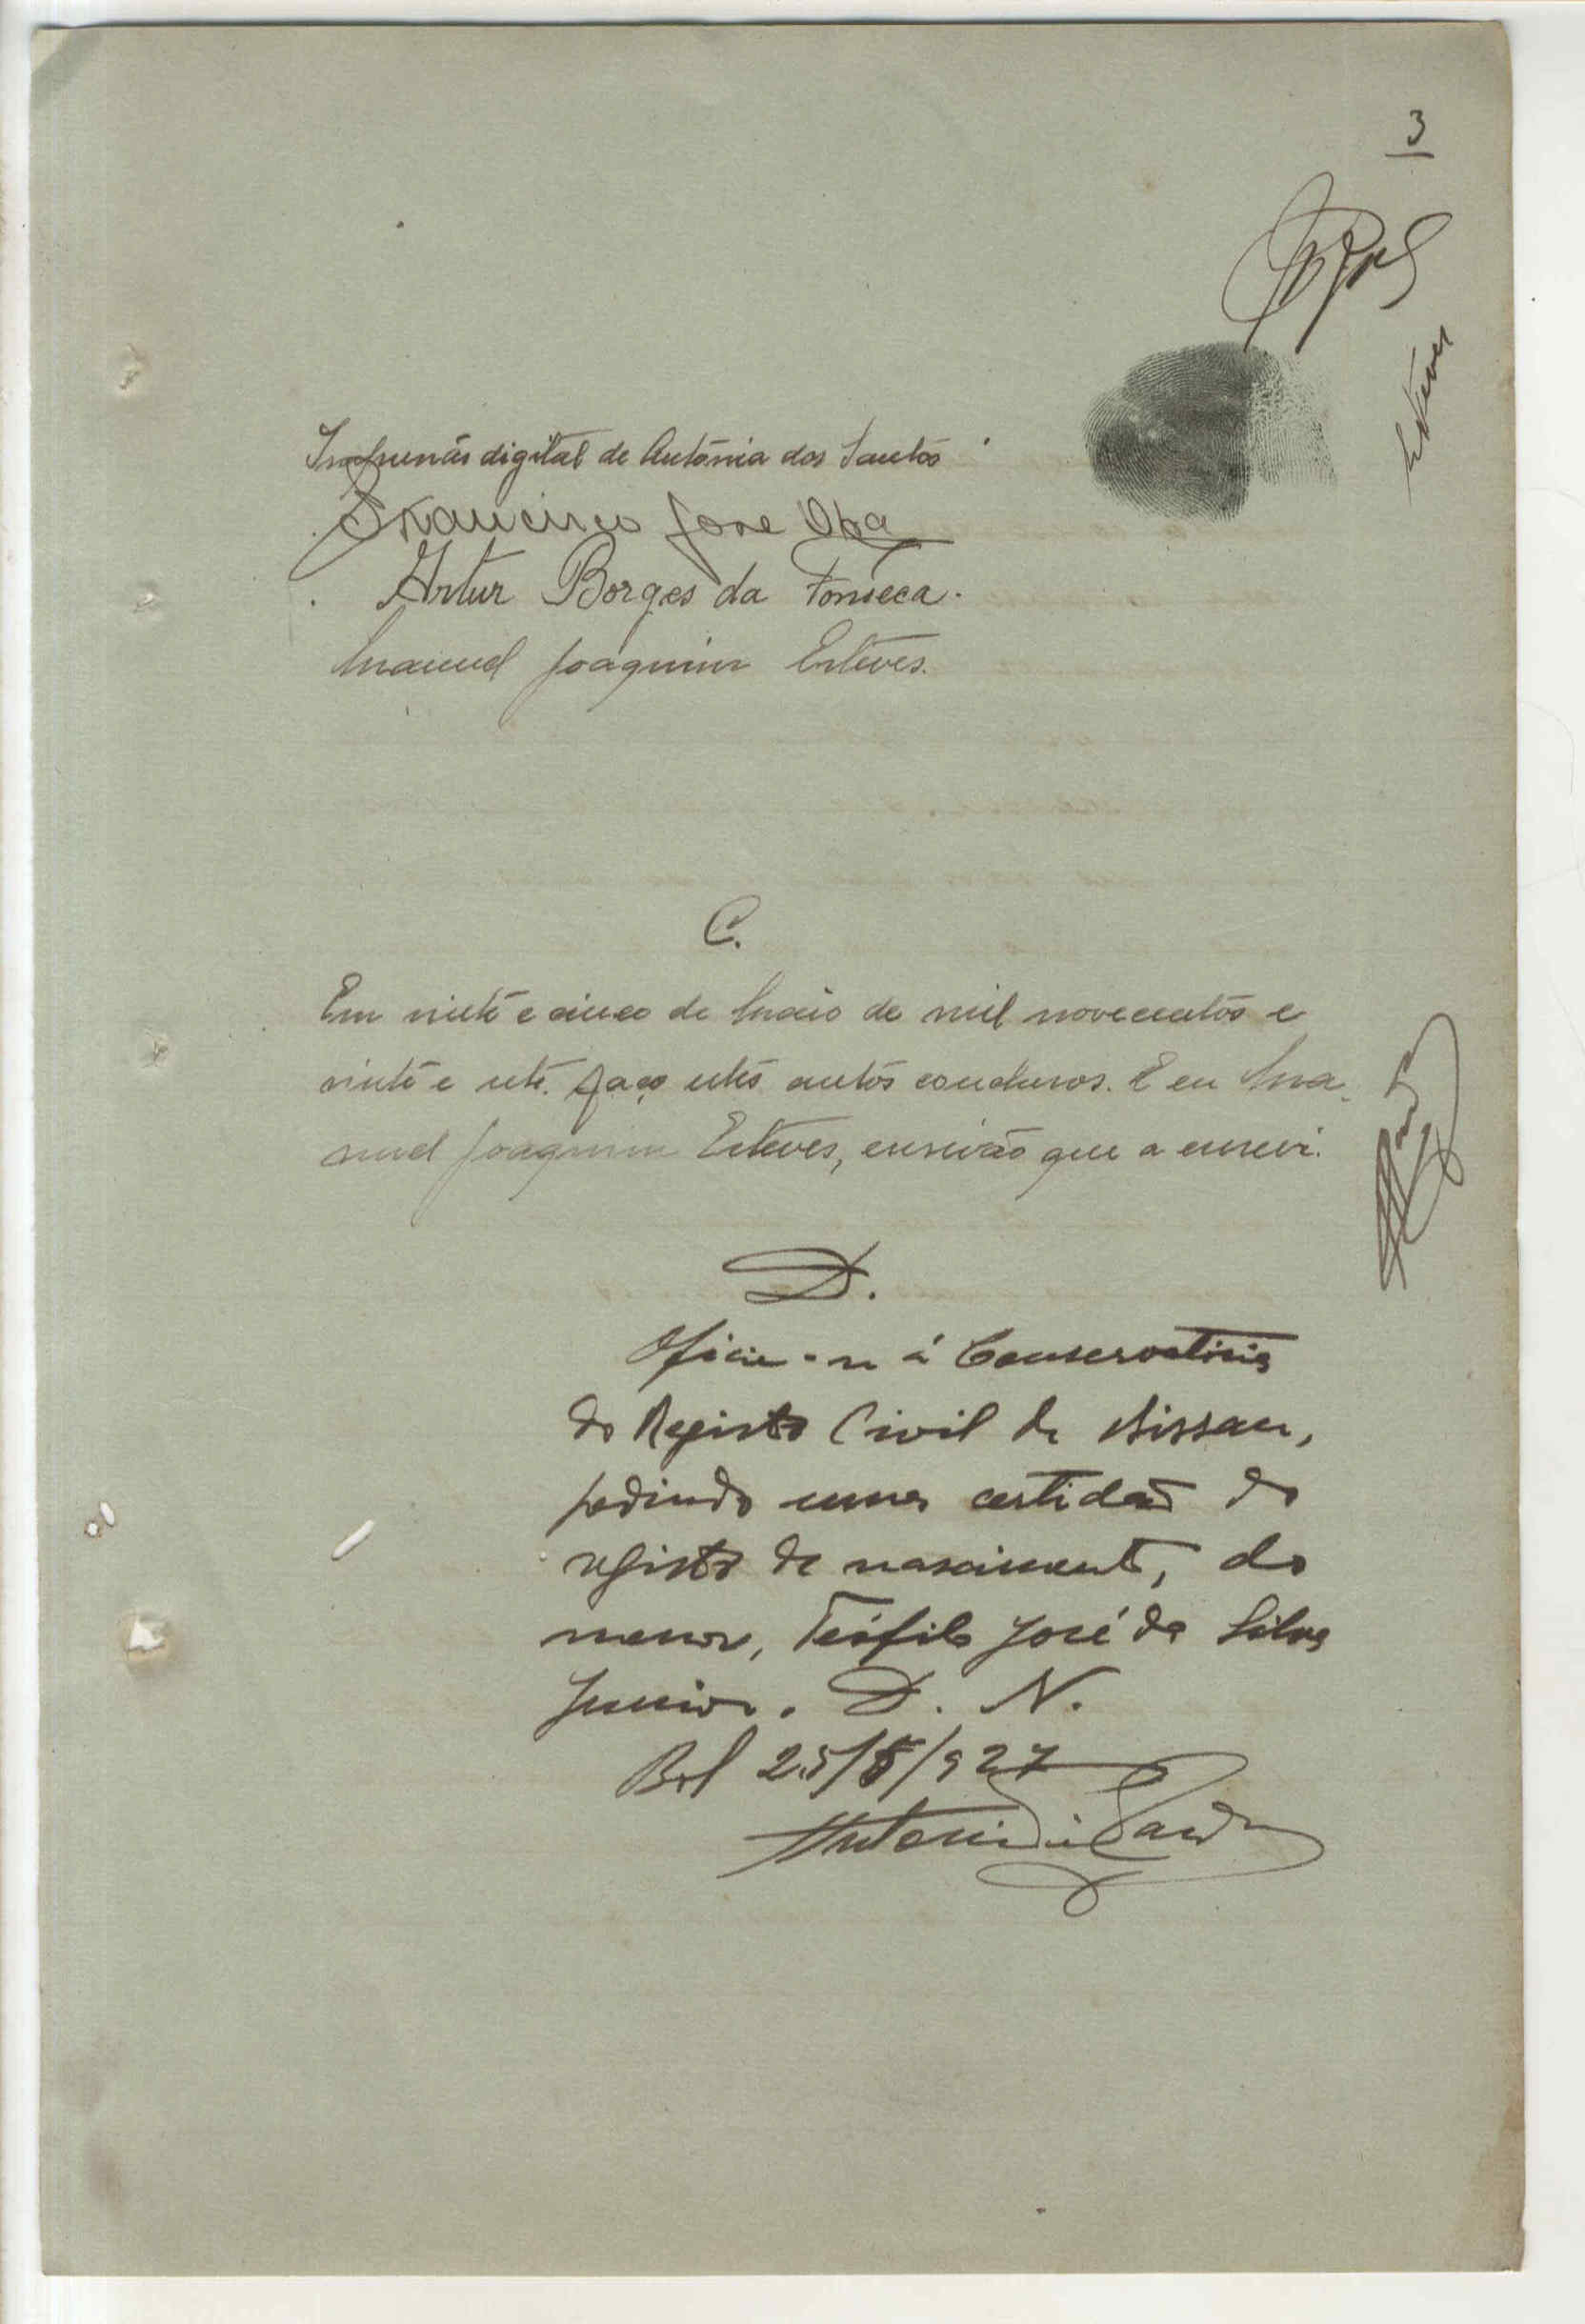 3
Esteves
Impressão digital de Antónia dos Santos
Francisco Jose
Artur Borges da Fonseca.
Manuel Joaquim Esteves.
C.
Em vinte e cinco de Maio de mil novecentos e
vinte e sete. faço estes autos conclusos. E eu Ma-
nuel Joaquim Esteves, escrivão que a escrevi.
D.
Oficie-se á Conservatória
do Registo Civil de Bissau,
pedindo uma certidão do
registo de nascimento, do
menor, Teófilo José da Silva
Junior. D. N.
Bol 25/5/927